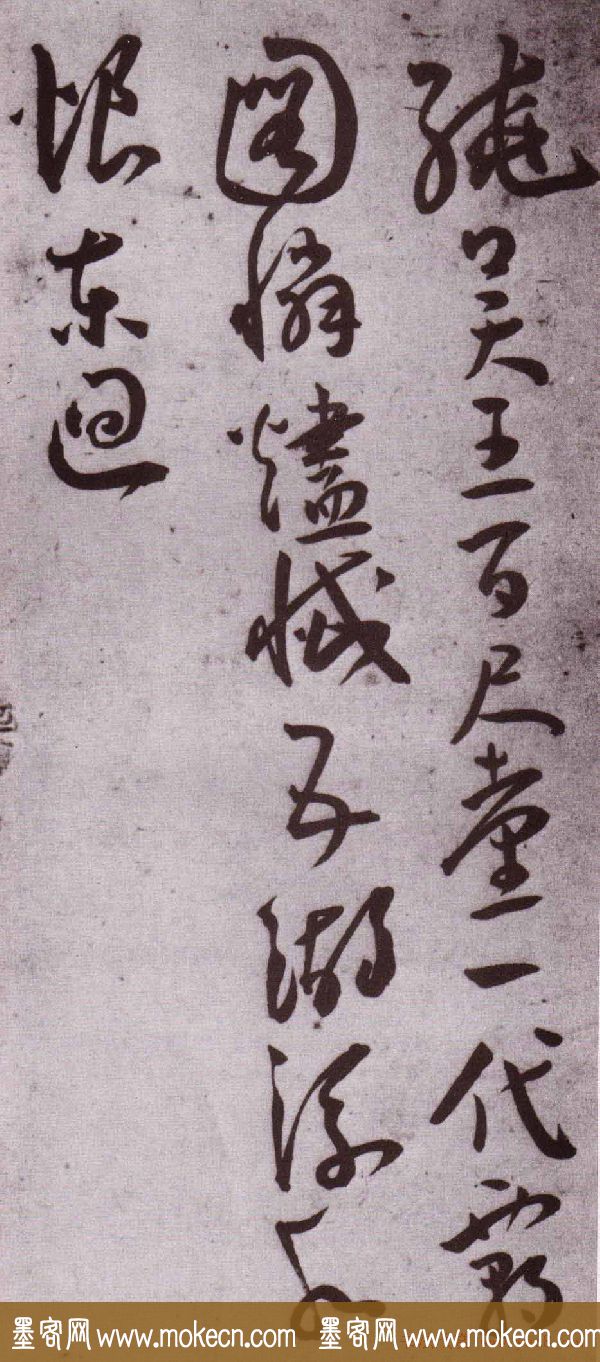 繞吴王百尺臺一代霸
圖憐燼滅五湖
恨東迴
墨客网 www.mokecn.com 墨客网 www.mokecn.com